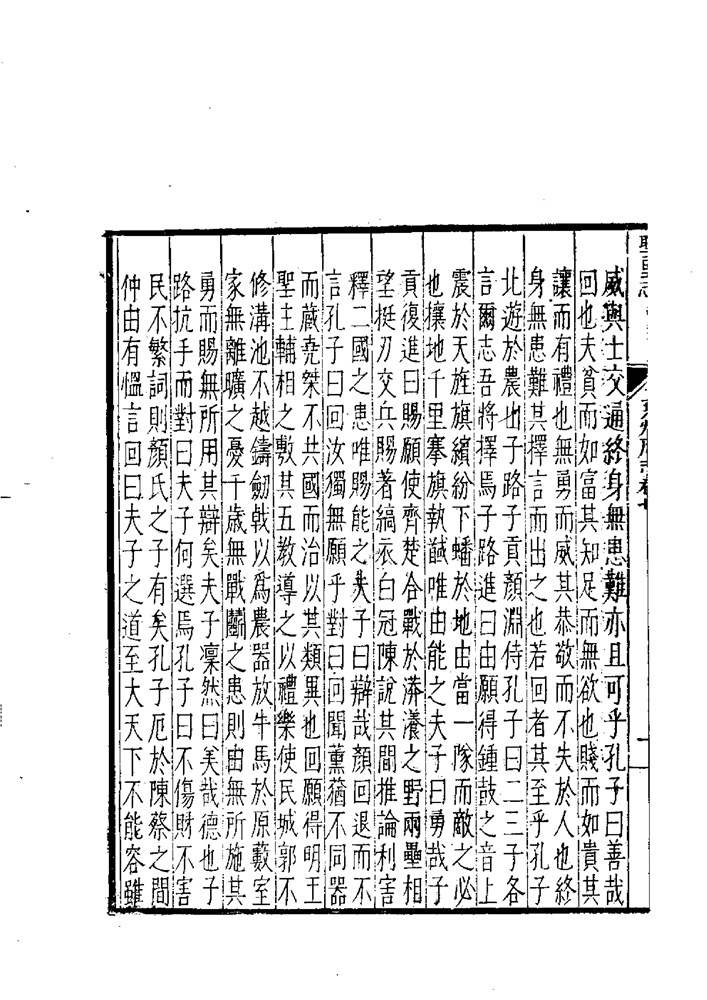 威與士交通終身無患難亦且可乎孔子曰善哉
回也夫貧而如富其知足而無欲也賤而如貴其
讓而有禮也無勇而威其恭敬而不失於人也終
身無患難其擇言而出之也若回者其至乎孔子
北遊於農山子路子貢顏淵侍孔子曰二三子各
言爾志吾將擇焉子路進曰由願得鍾鼓之音上
震於天旌旗繽紛下蟠於地由當一隊而敵之必
也攘地千里搴旗執馘唯由能之夫子曰勇哉子
貢復進曰賜願使齊楚合戰於漭瀁之野兩壘相
望挺刃交兵賜著縞衣白冠陳說其間推論利害
釋二國之患唯賜能之夫子曰辯哉顏回退而不
言孔子曰回汝獨無願乎對曰回聞薰蕕不同器
而藏堯桀不共國而治以其類異也回願得明王
聖主輔相之敷其五教導之以禮樂使民城郭不
修溝池不越鑄劒戟以爲農器放牛馬於原藪室
家無離曠之憂千歲無戰鬭之患則由無所施其
勇而賜無所用其辯矣夫子凜然曰美哉德也子
路抗手而對曰夫子何選焉孔子曰不傷財不害
民不繁詞則顏氏之子有矣孔子厄於陳蔡之間
仲由有慍言回曰夫子之道至大天下不能容雖